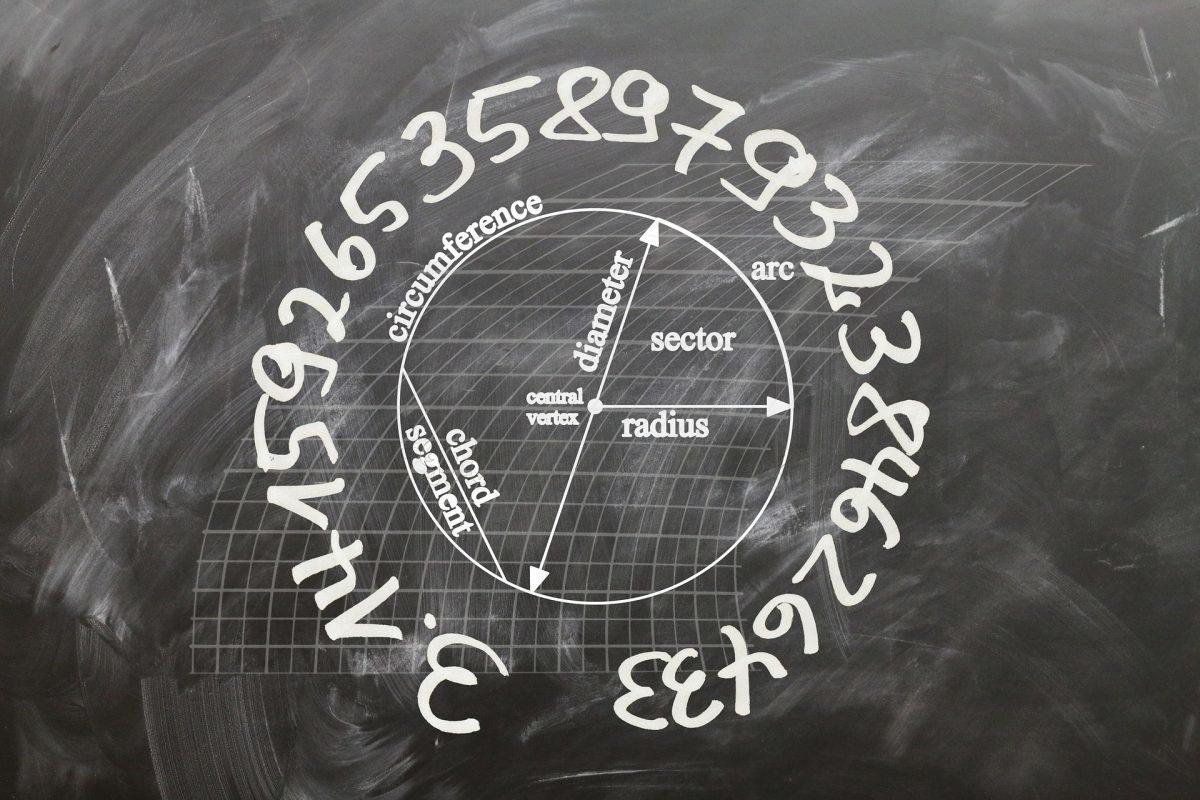 3.1415926535897932384626433
circumference
arc
diameter
sector
central
vertex
radius
chord
segment